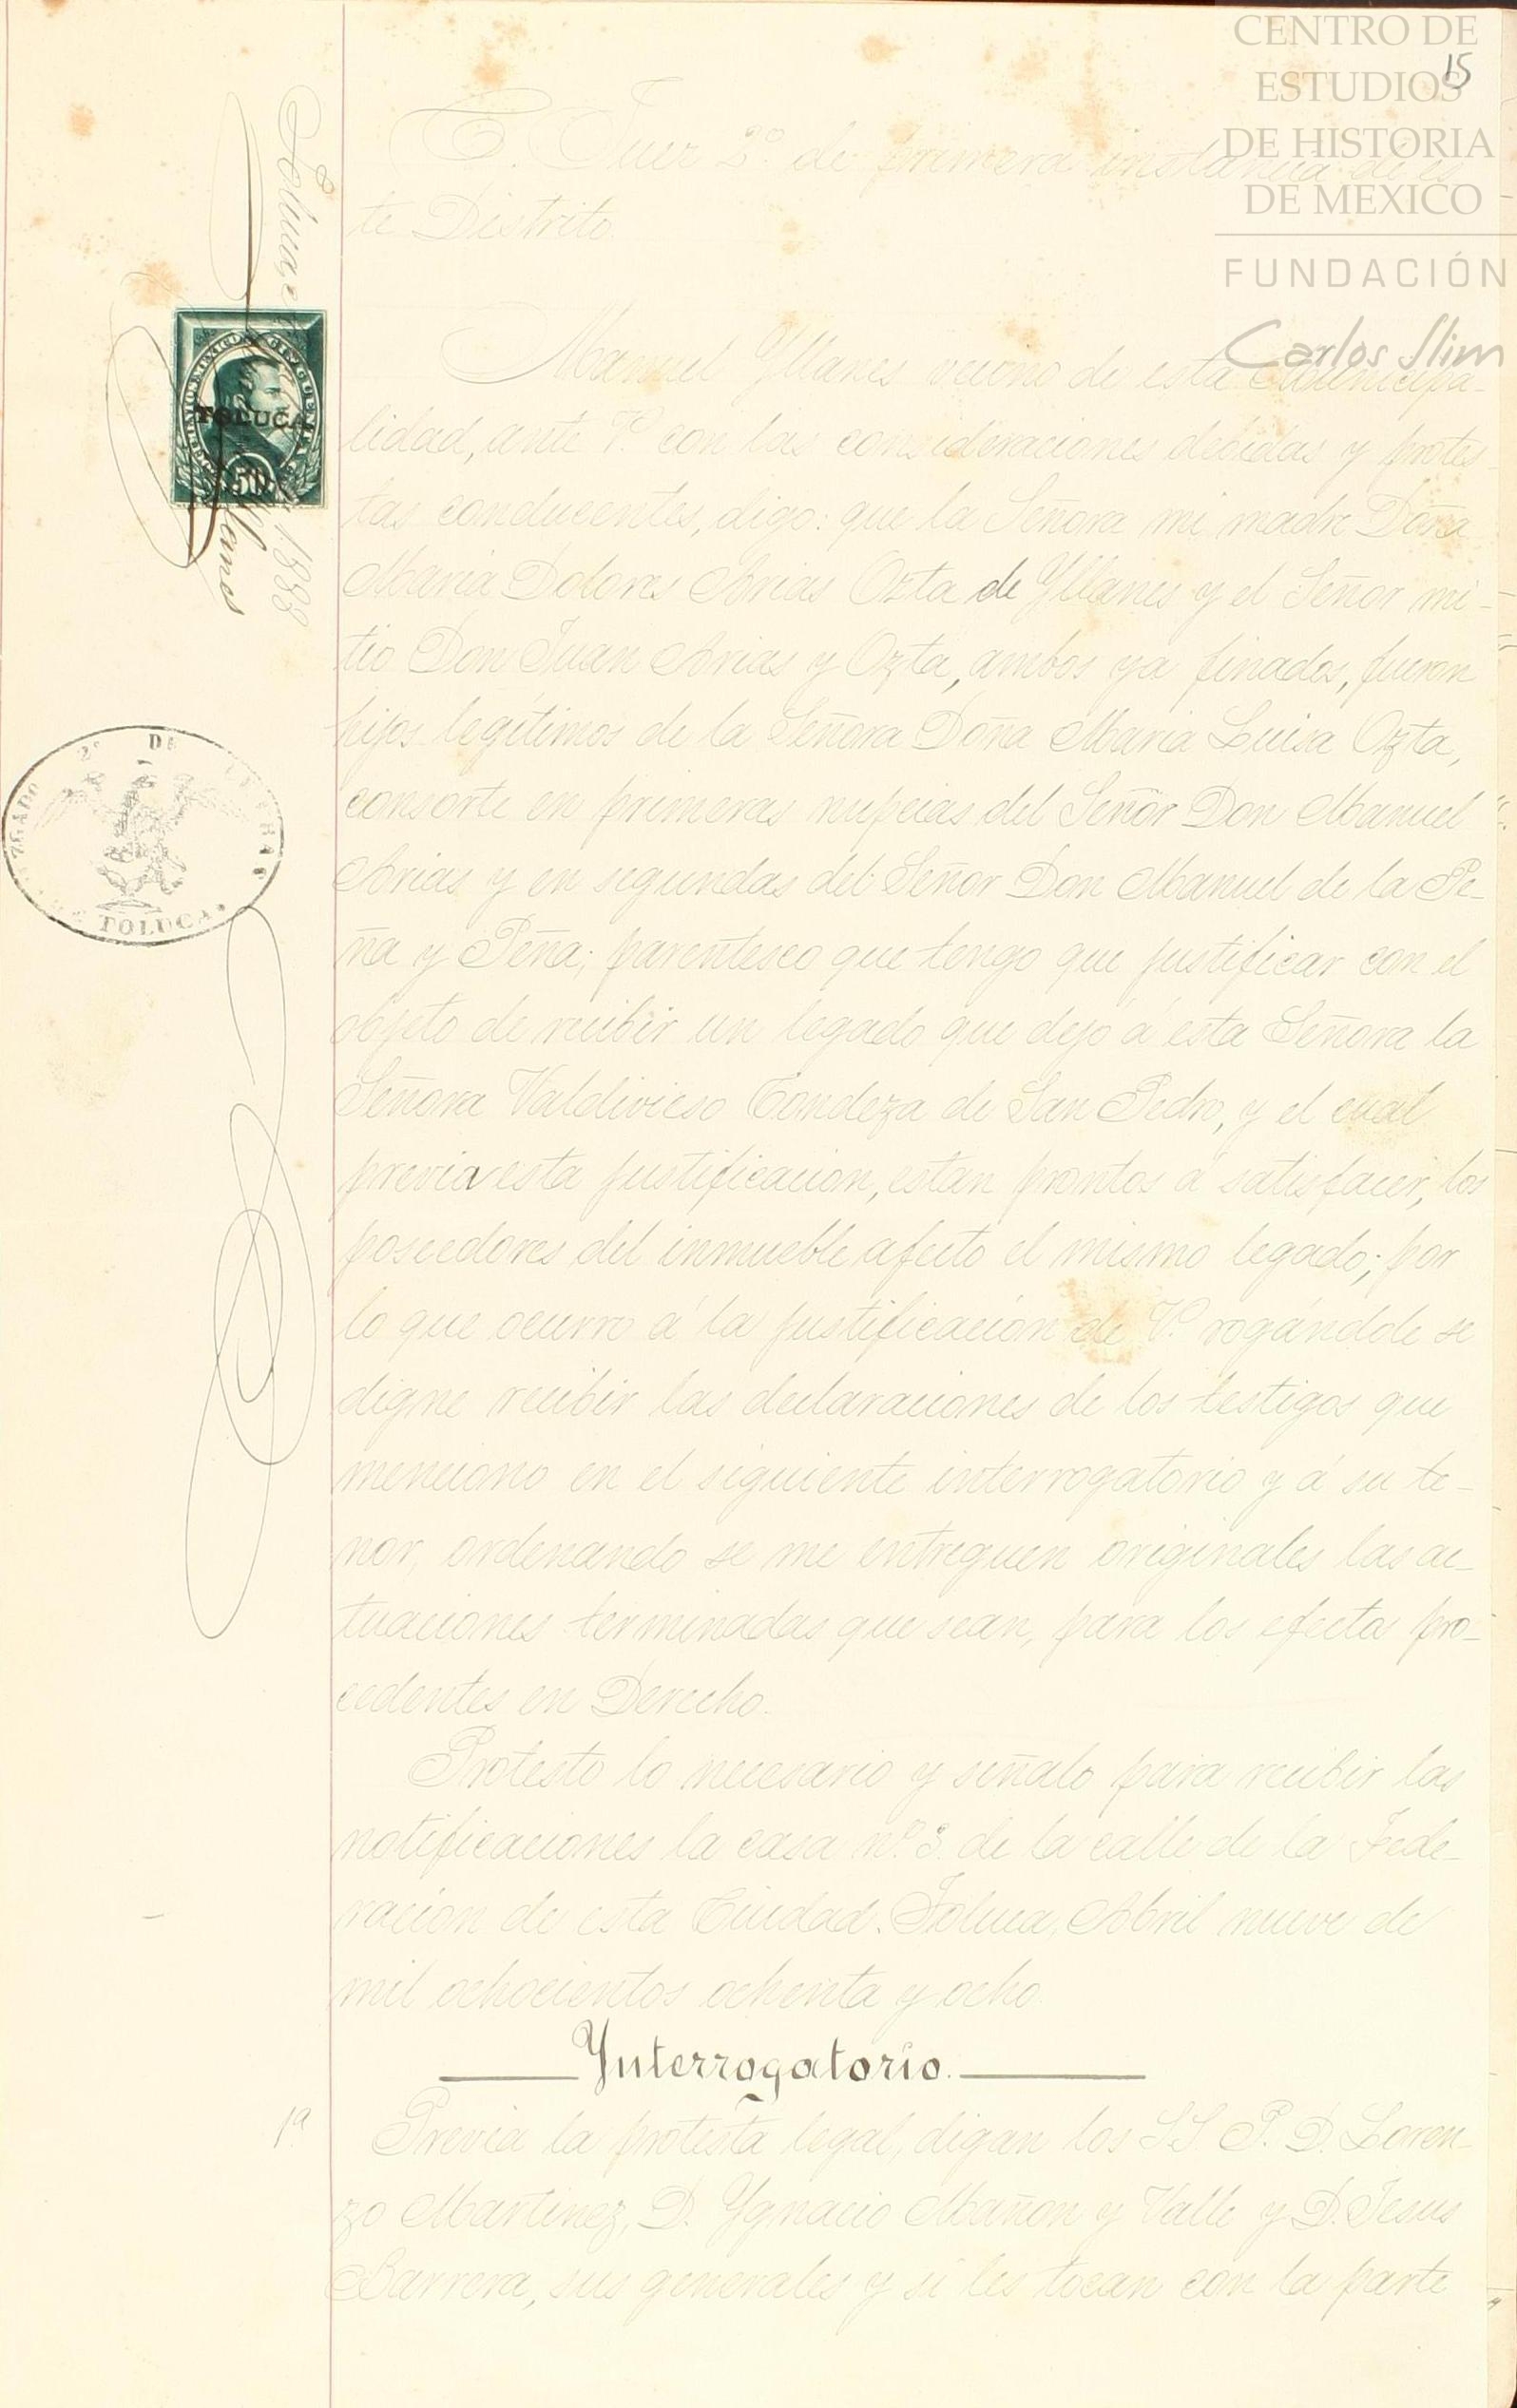 CENTRO DE
ESTUDIOS
DE HISTORIA
DE MEXICO
FUNDACIÓN
Carlos Slim
15
C. Juez 2º de primera instancia de es
te Distrito.
Manuel Yllanes vecino de esta Municipa-
lidad, ante V. con las consideraciones debidas y protes-
tas conducentes, digo: que la Señora mi madre Doña
Maria Dolores Arias Ozta de Yllanes y el Señor mi
tio Don Juan Arias y Ozta, ambos ya finados, fueron
hijos legítimos de la Señora Doña Maria Luisa Ozta,
consorte en primeras nupcias del Señor Don Manuel
Arias y en segundas del Señor Don Manuel de la Pe-
ña y Peña; parentesco que tengo que justificar con el
objeto de recibir un legado que dejo á esta Señora la
Señora Valdivieso Condeza de San Pedro, y el cual
previa esta justificacion, estan prontos á satisfacer, los
poseedores del inmueble afecto el mismo legado; por
lo que ocurro á la justificación de V. rogándole se
digne recibir las declaraciones de los testigos que
menciono en el siguiente interrogatorio y á su te-
nor, ordenando se me entreguen originales las ac-
tuaciones terminadas que sean, para los efectos pro-
cedentes en Derecho.
Protesto lo necesario y señalo para recibir las
notificaciones la casa nº 3. de la calle de la Fede-
racion de esta Ciudad. Toluca, Abril nueve de
mil ochocientos ochenta y ocho.
Ynterrogatorio.
1ª
Previa la protesta legal, digan los SS P. D. Loren-
zo Martinez, D. Ygnacio Mañon y Valle y D. Jesus
Barrera, sus generales y si les tocan con la parte
Toluca,
1888
Yllanes
TOLUCA
50
2º DE
TOLUCA